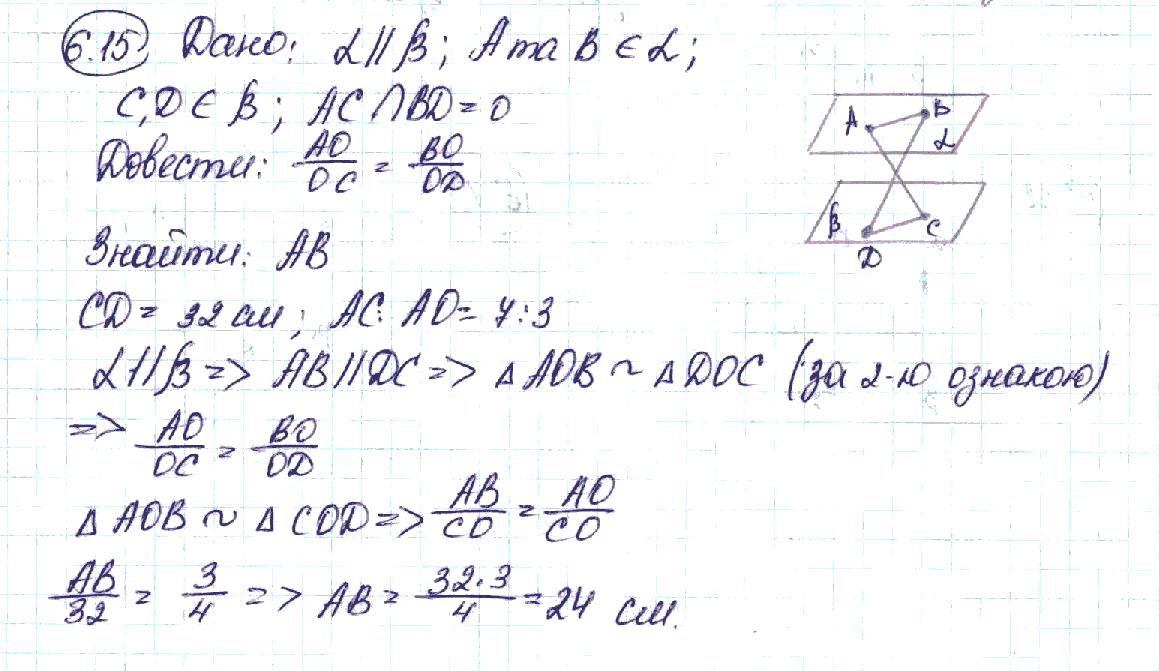 6.15 Дано: α∥β; A та B ∈ α;
C,D ∈ β; AC ∩ BD = O
Довести: AO/OC = BO/OD
Знайти: AB
CD = 32 см; AC:AO = 7:3
α∥β => AB∥DC => △AOB ~ △DOC (за 2-ю ознакою)
=> AO/OC = BO/OD
△AOB ~ △COD => AB/CO = AO/CO
AB/32 = 3/4 => AB = 32·3/4 = 24 см.
A B α
β C
D